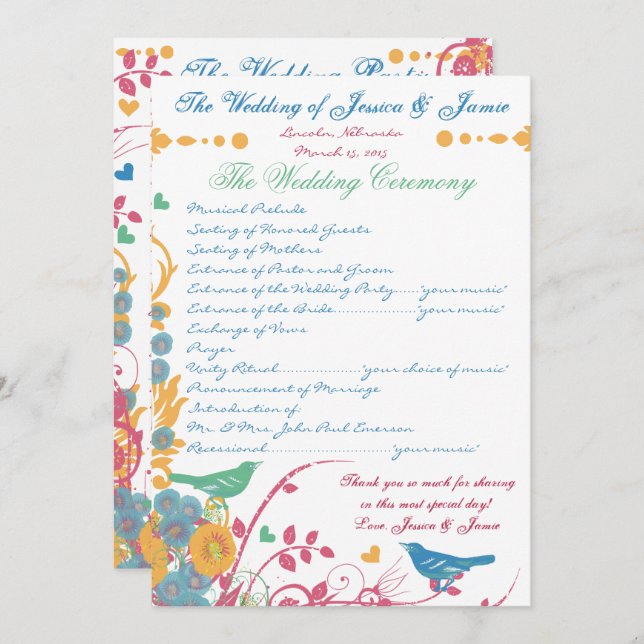 The Wedding Party
The Wedding of Jessica & Jamie
Lincoln, Nebraska
March 15, 2015
The Wedding Ceremony
Musical Prelude
Seating of Honored Guests
Seating of Mothers
Entrance of Pastor and Groom
Entrance of the Wedding Party......"your music"
Entrance of the Bride................."your music"
Exchange of Vows
Prayer
Unity Ritual....................."your choice of music"
Pronouncement of Marriage
Introduction of:
Mr. & Mrs. John Paul Emerson
Recessional..............................."your music"
Thank you so much for sharing
in this most special day!
Love, Jessica & Jamie